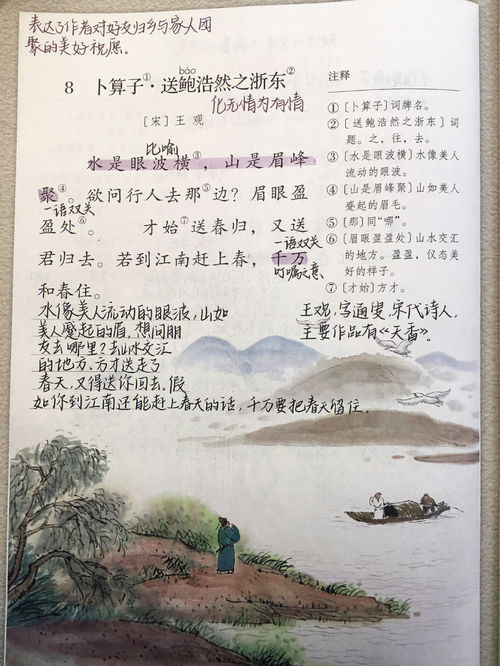 表达了作者对好友归乡与家人团
聚的美好祝愿。
bào
8 卜算子①·送鲍浩然之浙东②
化无情为有情
[宋]王 观
比喻
水是眼波横③，山是眉峰
聚④。欲问行人去那⑤边？眉眼盈
一语双关
盈处⑥。 才始⑦送春归，又送
一语双关
君归去。若到江南赶上春，千万
叮嘱之意
和春住。
注释
①〔卜算子〕词牌名。
②〔送鲍浩然之浙东〕词
题。之，往，去。
③〔水是眼波横〕水像美人
流动的眼波。
④〔山是眉峰聚〕山如美人
蹙起的眉毛。
⑤〔那〕同“哪”。
⑥〔眉眼盈盈处〕山水交汇
的地方。盈盈，仪态美
好的样子。
⑦〔才始〕方才。
水像美人流动的眼波，山如
美人蹙起的眉，想问朋
友去哪里？去山水交汇
的地方。方才送走了
春天，又得送你回去，假
如你到江南还能赶上春天的话，千万要把春天留住。
王观，字通叟，宋代诗人，
主要作品有《天香》。